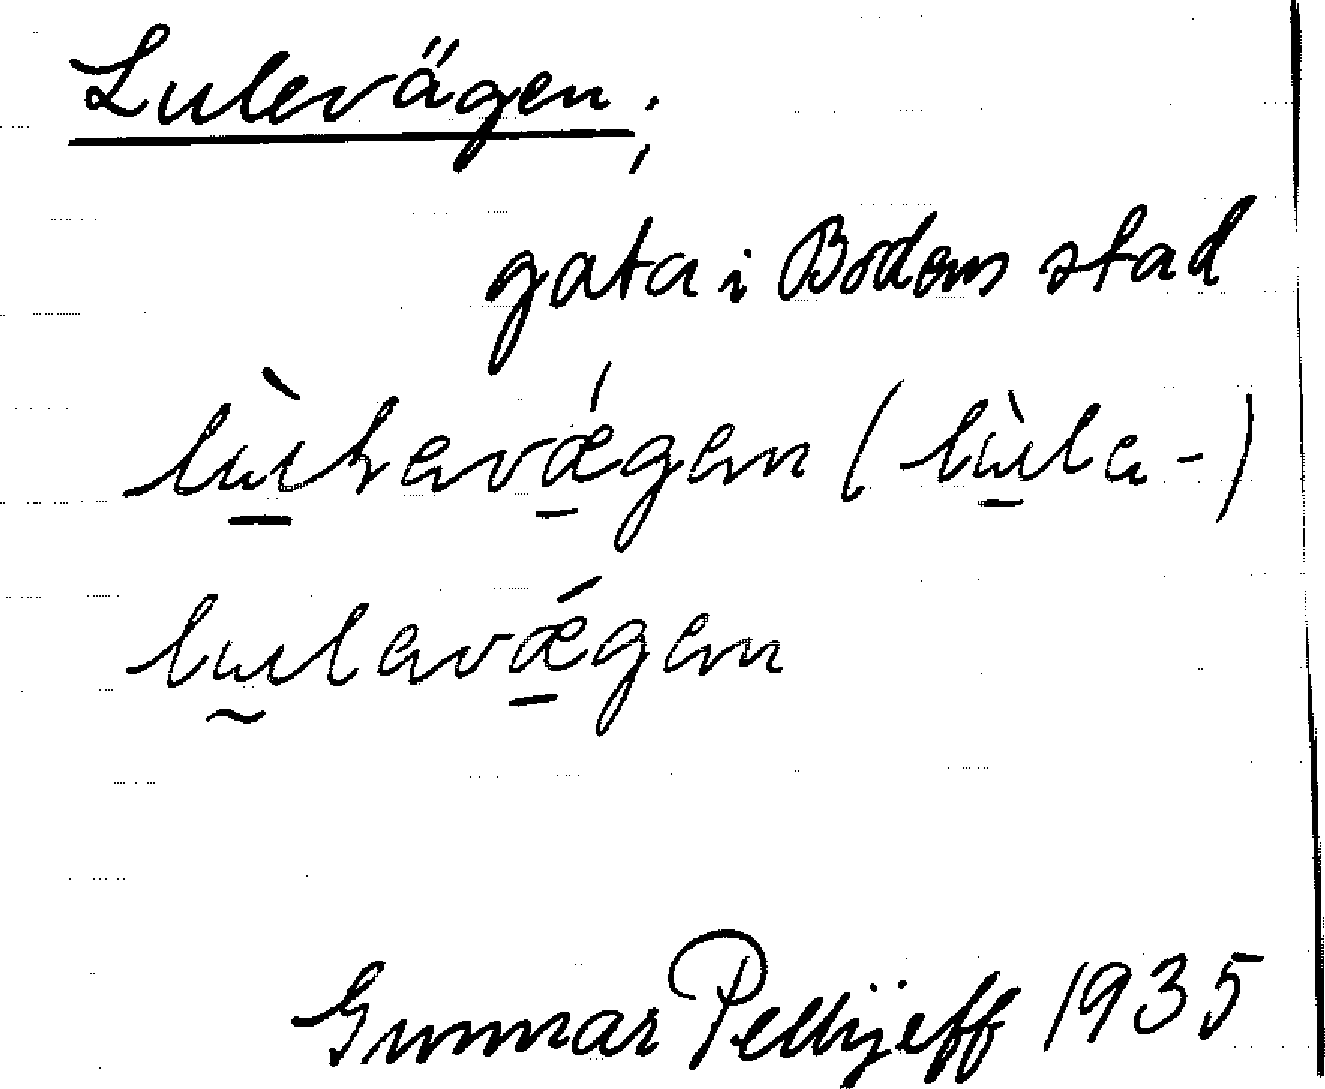 Lulevägen;
gata i Bodens stad
lù̱ɫevǽ̱gen (lù̱le-)
lṵlevǽ̱gen
Gunnar Pellijeff 1935